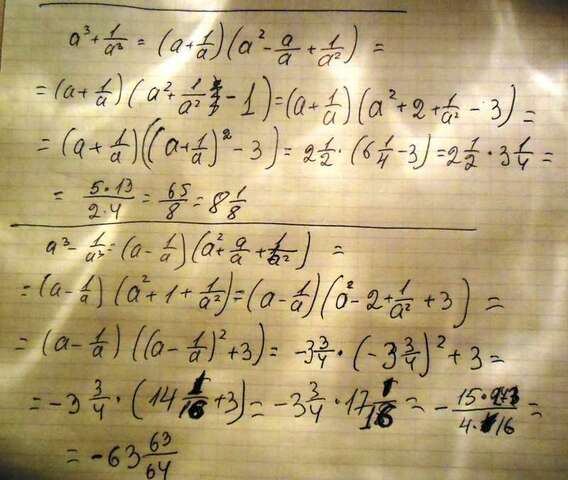 a³ + 1/a³ = (a + 1/a)(a² - a/a + 1/a²) =
= (a + 1/a)(a² + 1/a² - 1) = (a + 1/a)(a² + 2 + 1/a² - 3) =
= (a + 1/a)((a + 1/a)² - 3) = 2 1/2 · (6 1/4 - 3) = 2 1/2 · 3 1/4 =
= 5·13/2·4 = 65/8 = 8 1/8
a³ - 1/a³ = (a - 1/a)(a² + a/a + 1/a²) =
= (a - 1/a)(a² + 1 + 1/a²) = (a - 1/a)(a² - 2 + 1/a² + 3) =
= (a - 1/a)((a - 1/a)² + 3) = -3 3/4 · (-3 3/4)² + 3 =
= -3 3/4 · (14 1/16 + 3) = -3 3/4 · 17 1/16 = - 15·273/4·16 =
= -63 63/64